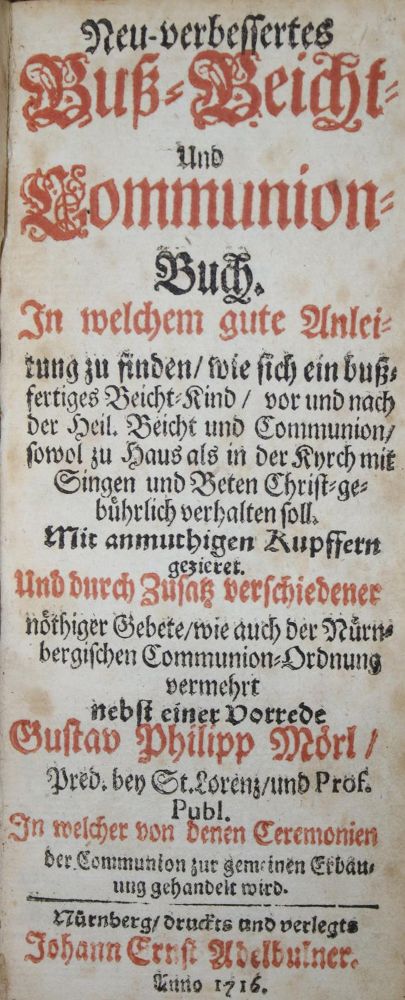 Neu-verbessertes
Buß-Beicht-
Und
Communion-
Buch.
In welchem gute Anlei-
tung zu finden/ wie sich ein buß-
fertiges Beicht-Kind/ vor und nach
der Heil. Beicht und Communion/
sowol zu Haus als in der Kyrch mit
Singen und Beten Christ-ge-
bührlich verhalten soll.
Mit anmuthigen Kupffern
gezieret.
Und durch Zusatz verschiedener
nöthiger Gebete/wie auch der Nürn-
bergischen Communion-Ordnung
vermehrt
nebst einer Vorrede
Gustav Philipp Mörl/
Pred. bey St. Lorenz/und Prof.
Publ.
In welcher von denen Ceremonien
der Communion zur gemeinen Erbau-
ung gehandelt wird.
Nürnberg/ druckts und verlegts
Johann Ernst Adelbulner.
Anno 1716.